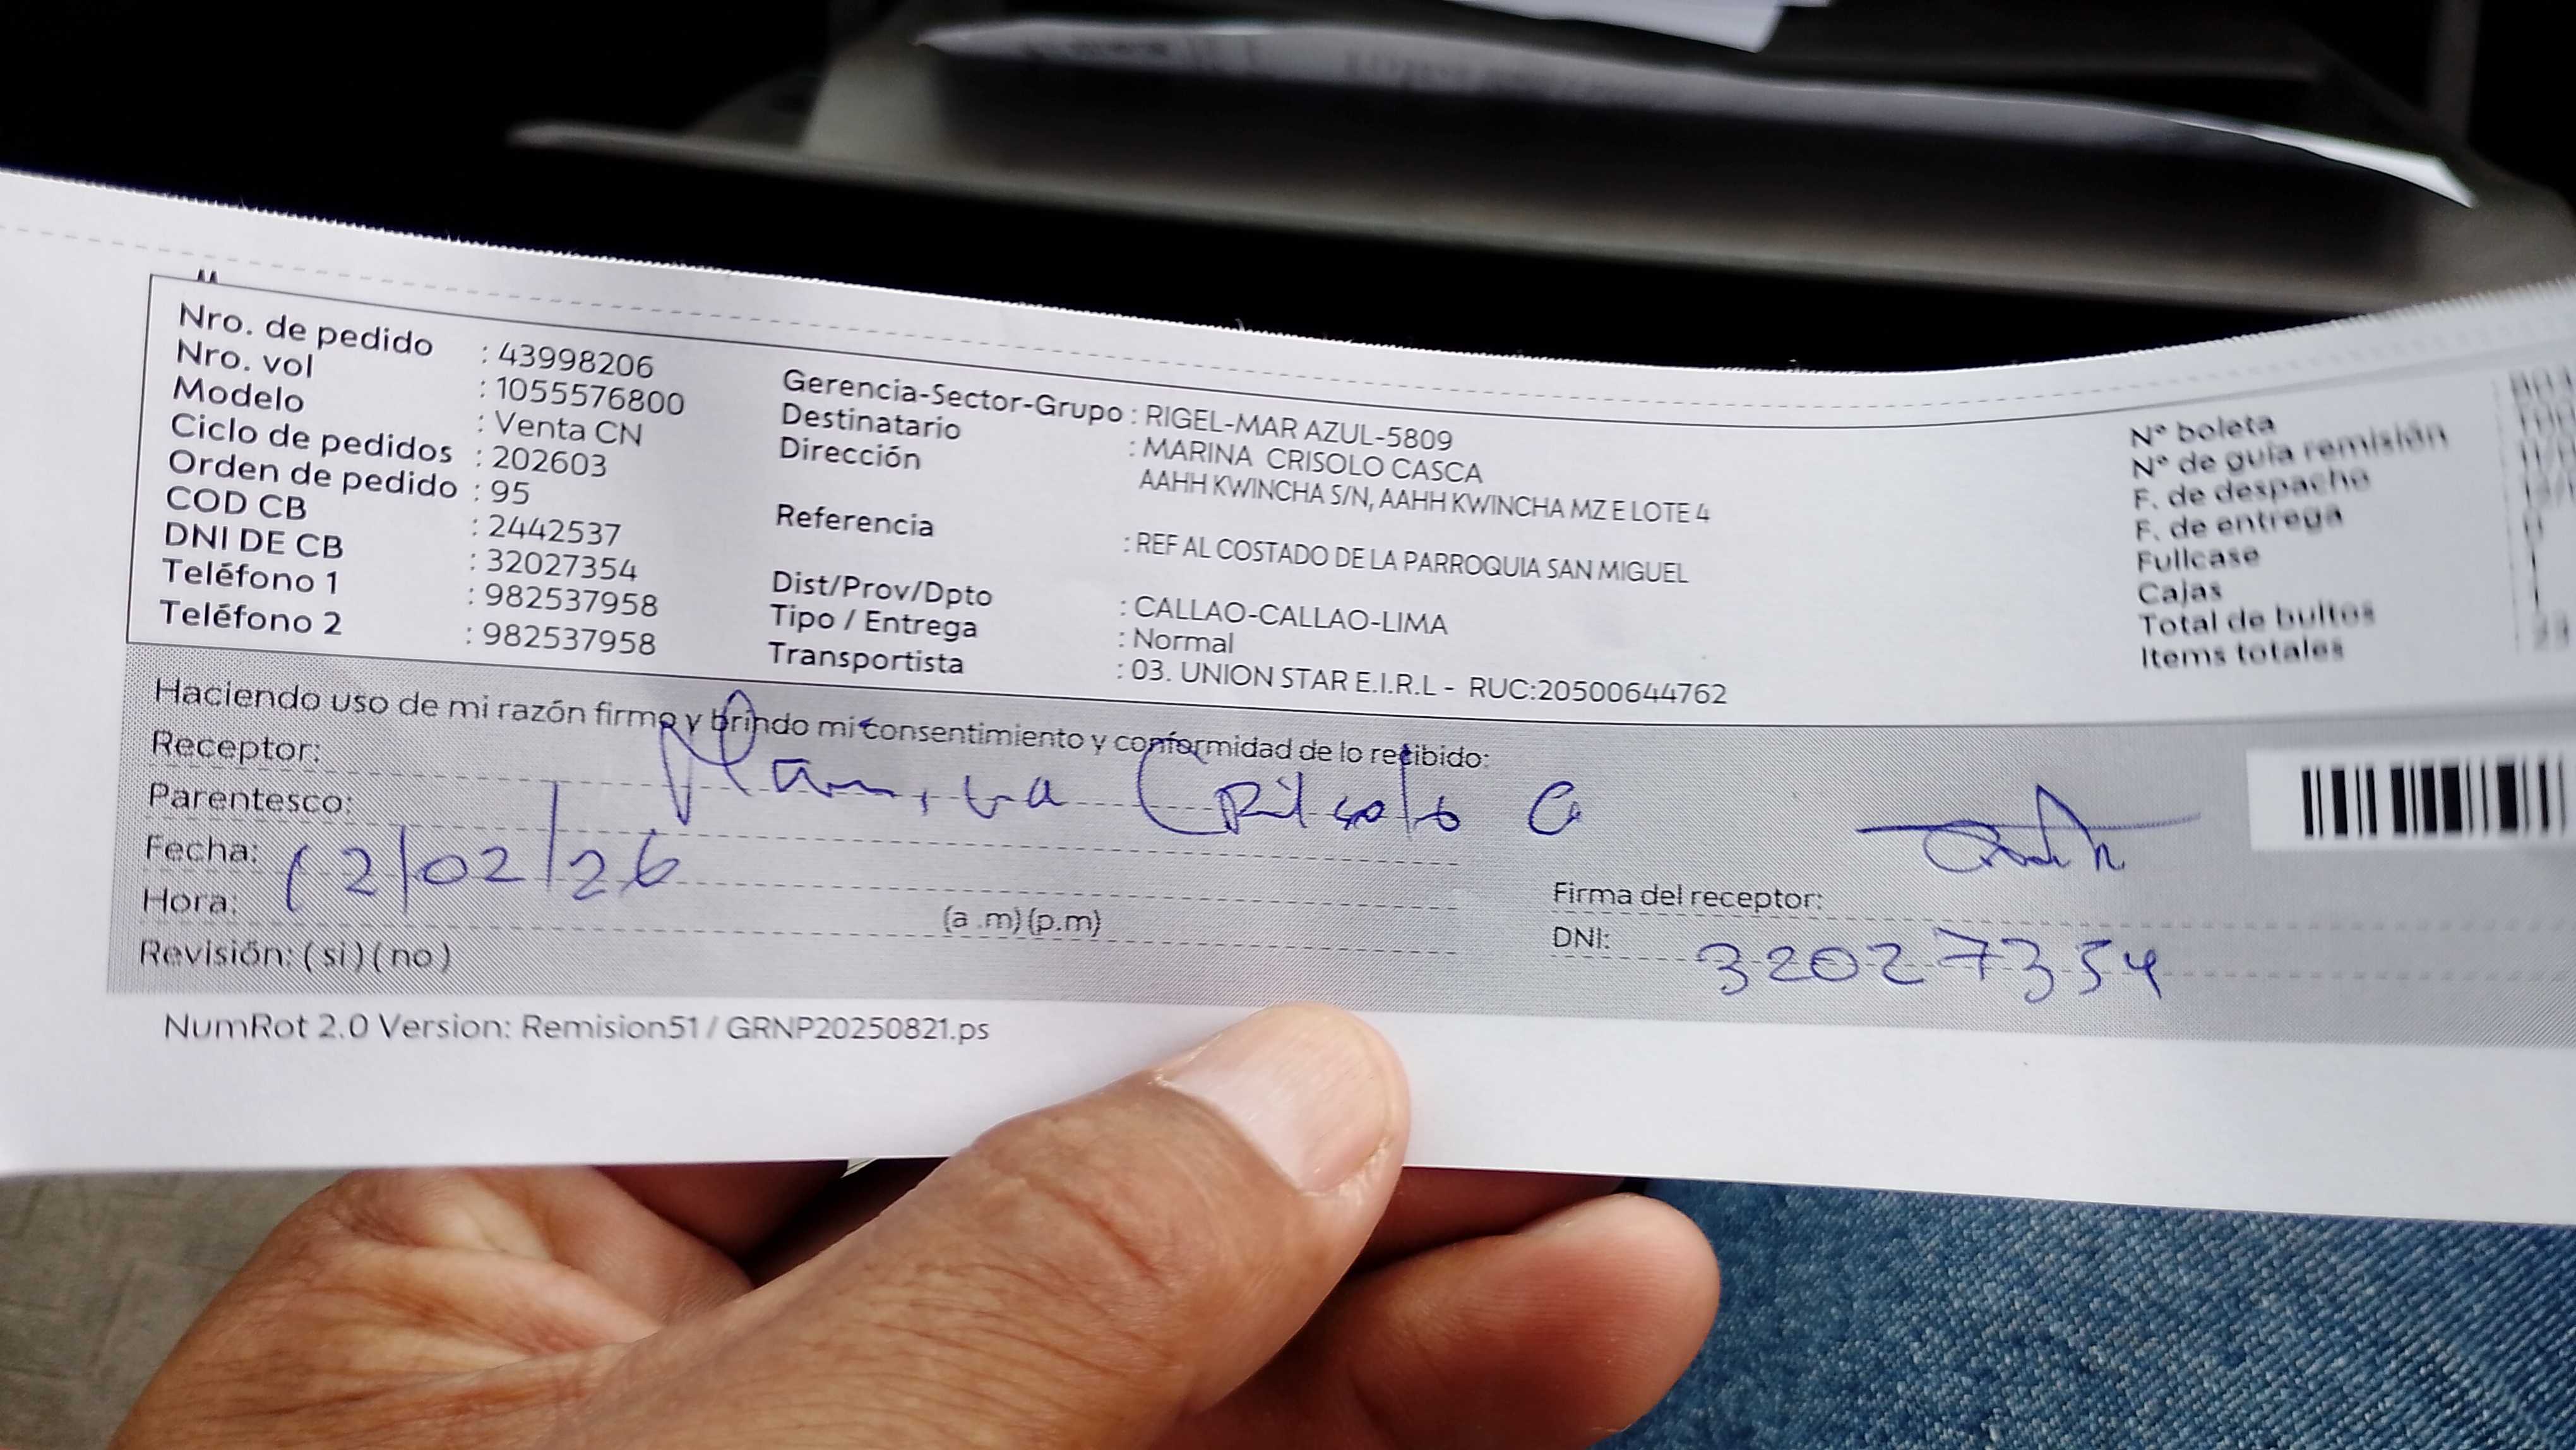 Nro. de pedido : 43998206
Nro. vol : 1055576800
Modelo : Venta CN
Ciclo de pedidos : 202603
Orden de pedido : 95
COD CB : 2442537
DNI DE CB : 32027354
Teléfono 1 : 982537958
Teléfono 2 : 982537958
Gerencia-Sector-Grupo : RIGEL-MAR AZUL-5809
Destinatario : MARINA CRISOLO CASCA
Dirección AAHH KWINCHA S/N, AAHH KWINCHA MZ E LOTE 4
Referencia : REF AL COSTADO DE LA PARROQUIA SAN MIGUEL
Dist/Prov/Dpto : CALLAO-CALLAO-LIMA
Tipo / Entrega : Normal
Transportista : 03. UNION STAR E.I.R.L - RUC:20500644762
N° boleta
N° de guía remisión
F. de despacho
F. de entrega
Fullcase
Cajas
Total de bultos
Items totales
Haciendo uso de mi razón firmo y brindo mi consentimiento y conformidad de lo recibido:
Receptor: Marina Crisolo C
Parentesco:
Fecha: 12/02/26
Hora: (a .m) (p.m)
Revisión: ( si ) ( no )
Firma del receptor:
DNI: 32027354
NumRot 2.0 Version: Remision51 / GRNP20250821.ps